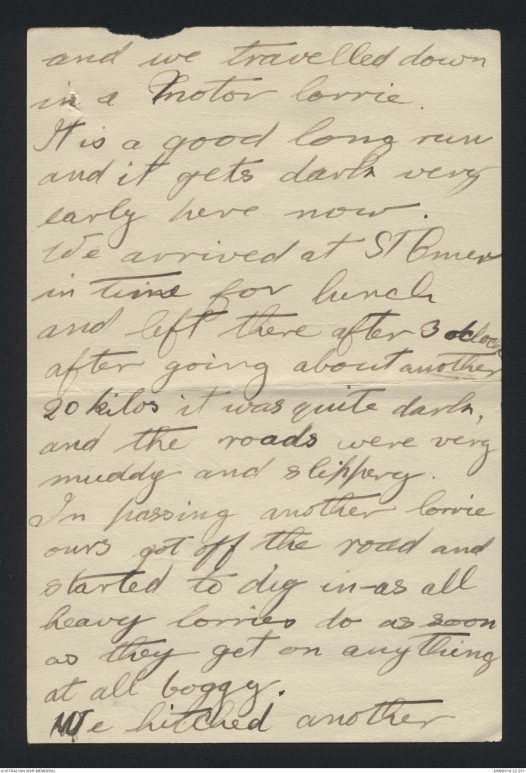 and we travelled down
in a Motor lorrie.
It is a good long run
and it gets dark very
early here now.
We arrived at ST Omer
in time for lunch
and left there after 3 oclock
after going about another
20 kilos it was quite dark,
and the roads were very
muddy and slippery.
In passing another lorrie
ours got off the road and
started to dig in-as all
heavy lorries do as soon
as they get on anything
at all boggy.
We hitched another
AUSTRALIAN WAR MEMORIAL